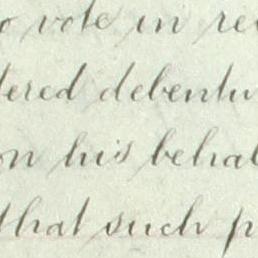 to vote in re
tered debentu
on his behal
that such p